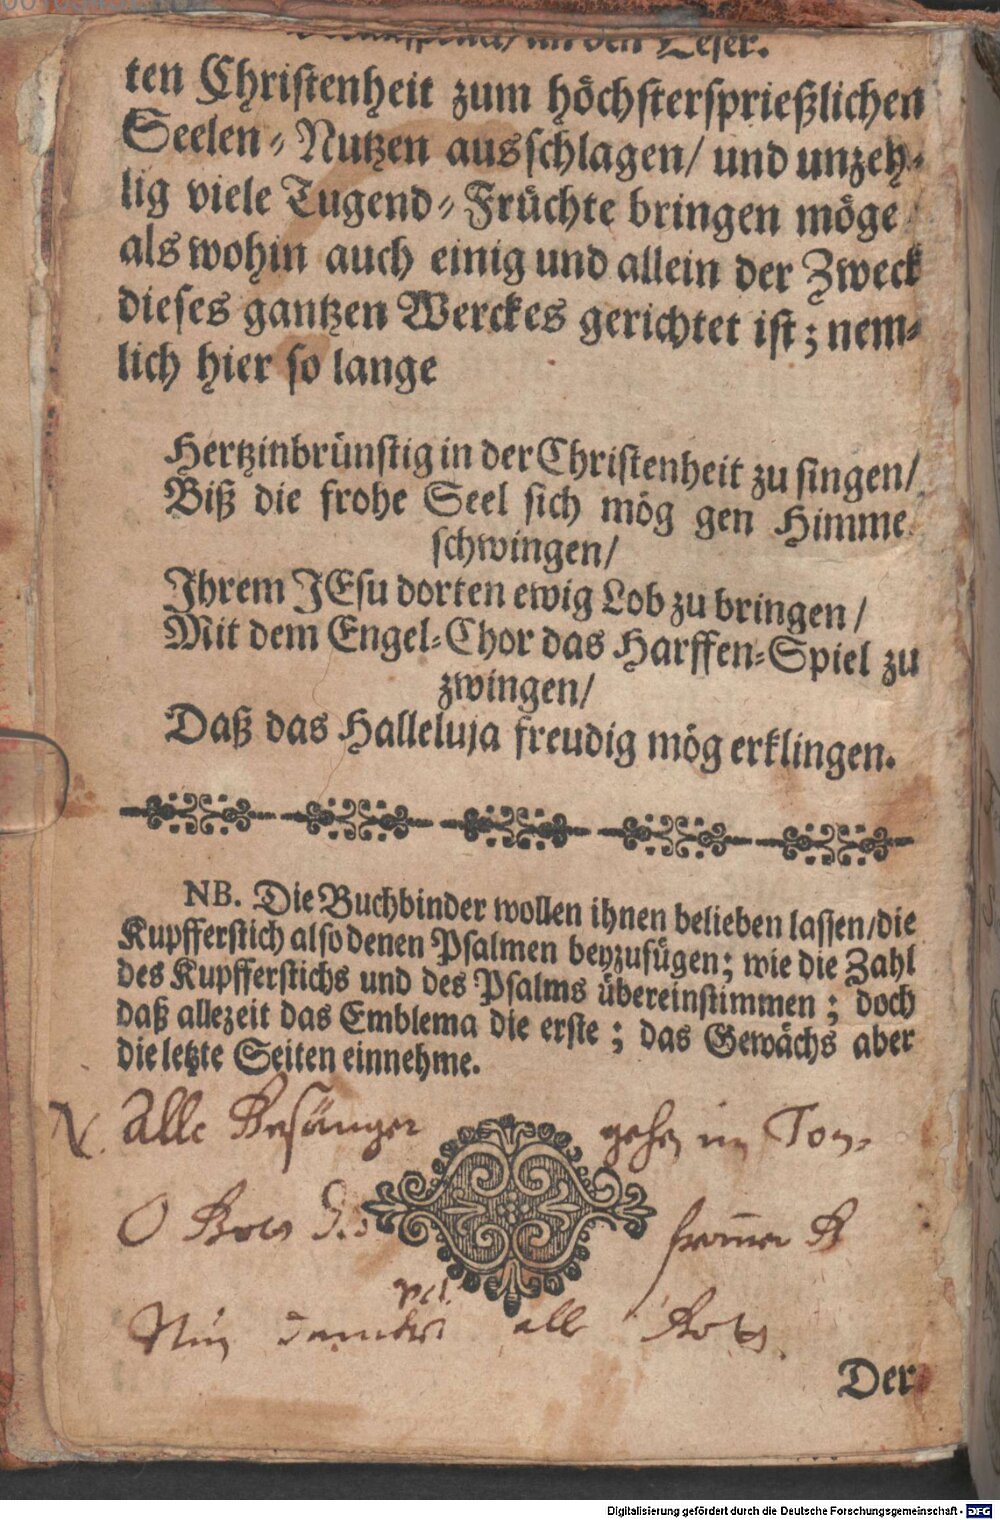 an den Leser.
ten Christenheit zum höchstersprießlichen
Seelen-Nutzen ausschlagen/ und unzeh-
lig viele Tugend-Früchte bringen möge
als wohin auch einig und allein der Zweck
dieses gantzen Werckes gerichtet ist; nem-
lich hier so lange
Hertzinbrünstig in der Christenheit zu singen/
Biß die frohe Seel sich mög gen Himme
schwingen/
Ihrem JEsu dorten ewig Lob zu bringen/
Mit dem Engel-Chor das Harffen-Spiel zu
zwingen/
Daß das Halleluja freudig mög erklingen.
NB. Die Buchbinder wollen ihnen belieben lassen/die
Kupfferstich also denen Psalmen beyzufügen; wie die Zahl
des Kupfferstichs und des Psalms übereinstimmen; doch
daß allezeit das Emblema die erste; das Gewächs aber
die letzte Seiten einnehme.
Alle Gesänger gehen im Ton
O Gott du frommer G
vel.
Nun dancket alle Gott.
Der
Digitalisierung gefördert durch die Deutsche Forschungsgemeinschaft - DFG